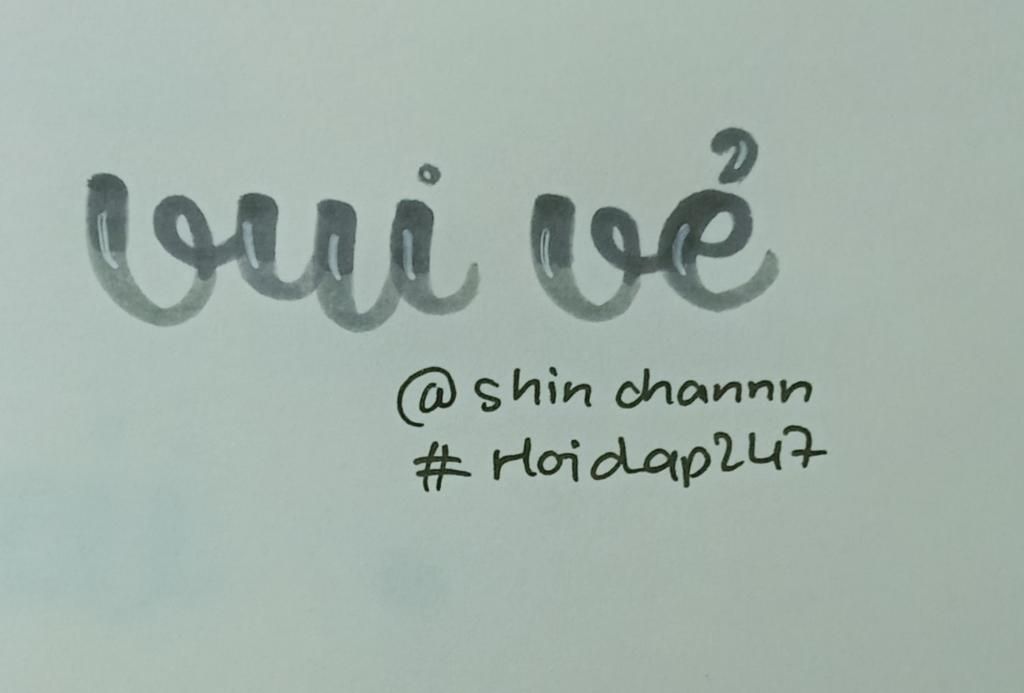 vui vẻ
@shin channn
#Hoidap247